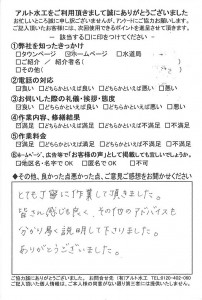 アルト水工をご利用頂きまして誠にありがとうございました
お忙しいところ誠に申し訳ございませんが、アンケートにご協力お願いします。
ご記入頂いたお客様には、次回使用できるポイントを進呈させて頂きます。
－ 該当する□に印をつけてください －
①弊社を知ったきっかけ
□タウンページ ☑ホームページ □水道局
□ご紹介 / 紹介者名(　　　)
□その他(　　　)
②電話の対応
☑良い □どちらかといえば良い □どちらかといえば悪い □悪い
③お伺いした際の礼儀・挨拶・態度
☑良い □どちらかといえば良い □どちらかといえば悪い □悪い
④作業内容、修繕結果
☑満足 □どちらかといえば満足 □どちらかといえば不満足 □不満足
⑤作業料金
☑満足 □どちらかといえば満足 □どちらかといえば不満足 □不満足
⑥ホームページ、広告等で「お客様の声」として掲載しても宜しいでしょうか。
□地区名・名字で OK □匿名で OK □不可
◆その他、良かった点悪かった点、ご意見ご感想をお聞かせください
とても丁寧に作業して頂きました。
皆さん感じも良く、その他のアドバイスも
分かり易く説明して下さりました。
ありがとうございました。
ご協力誠にありがとうございました。 お問合せ先 (有)アルト水工 TEL0120-402-080
ご記入頂いた個人情報は、ご本人様の同意がない限り第三者には提供いたしません。